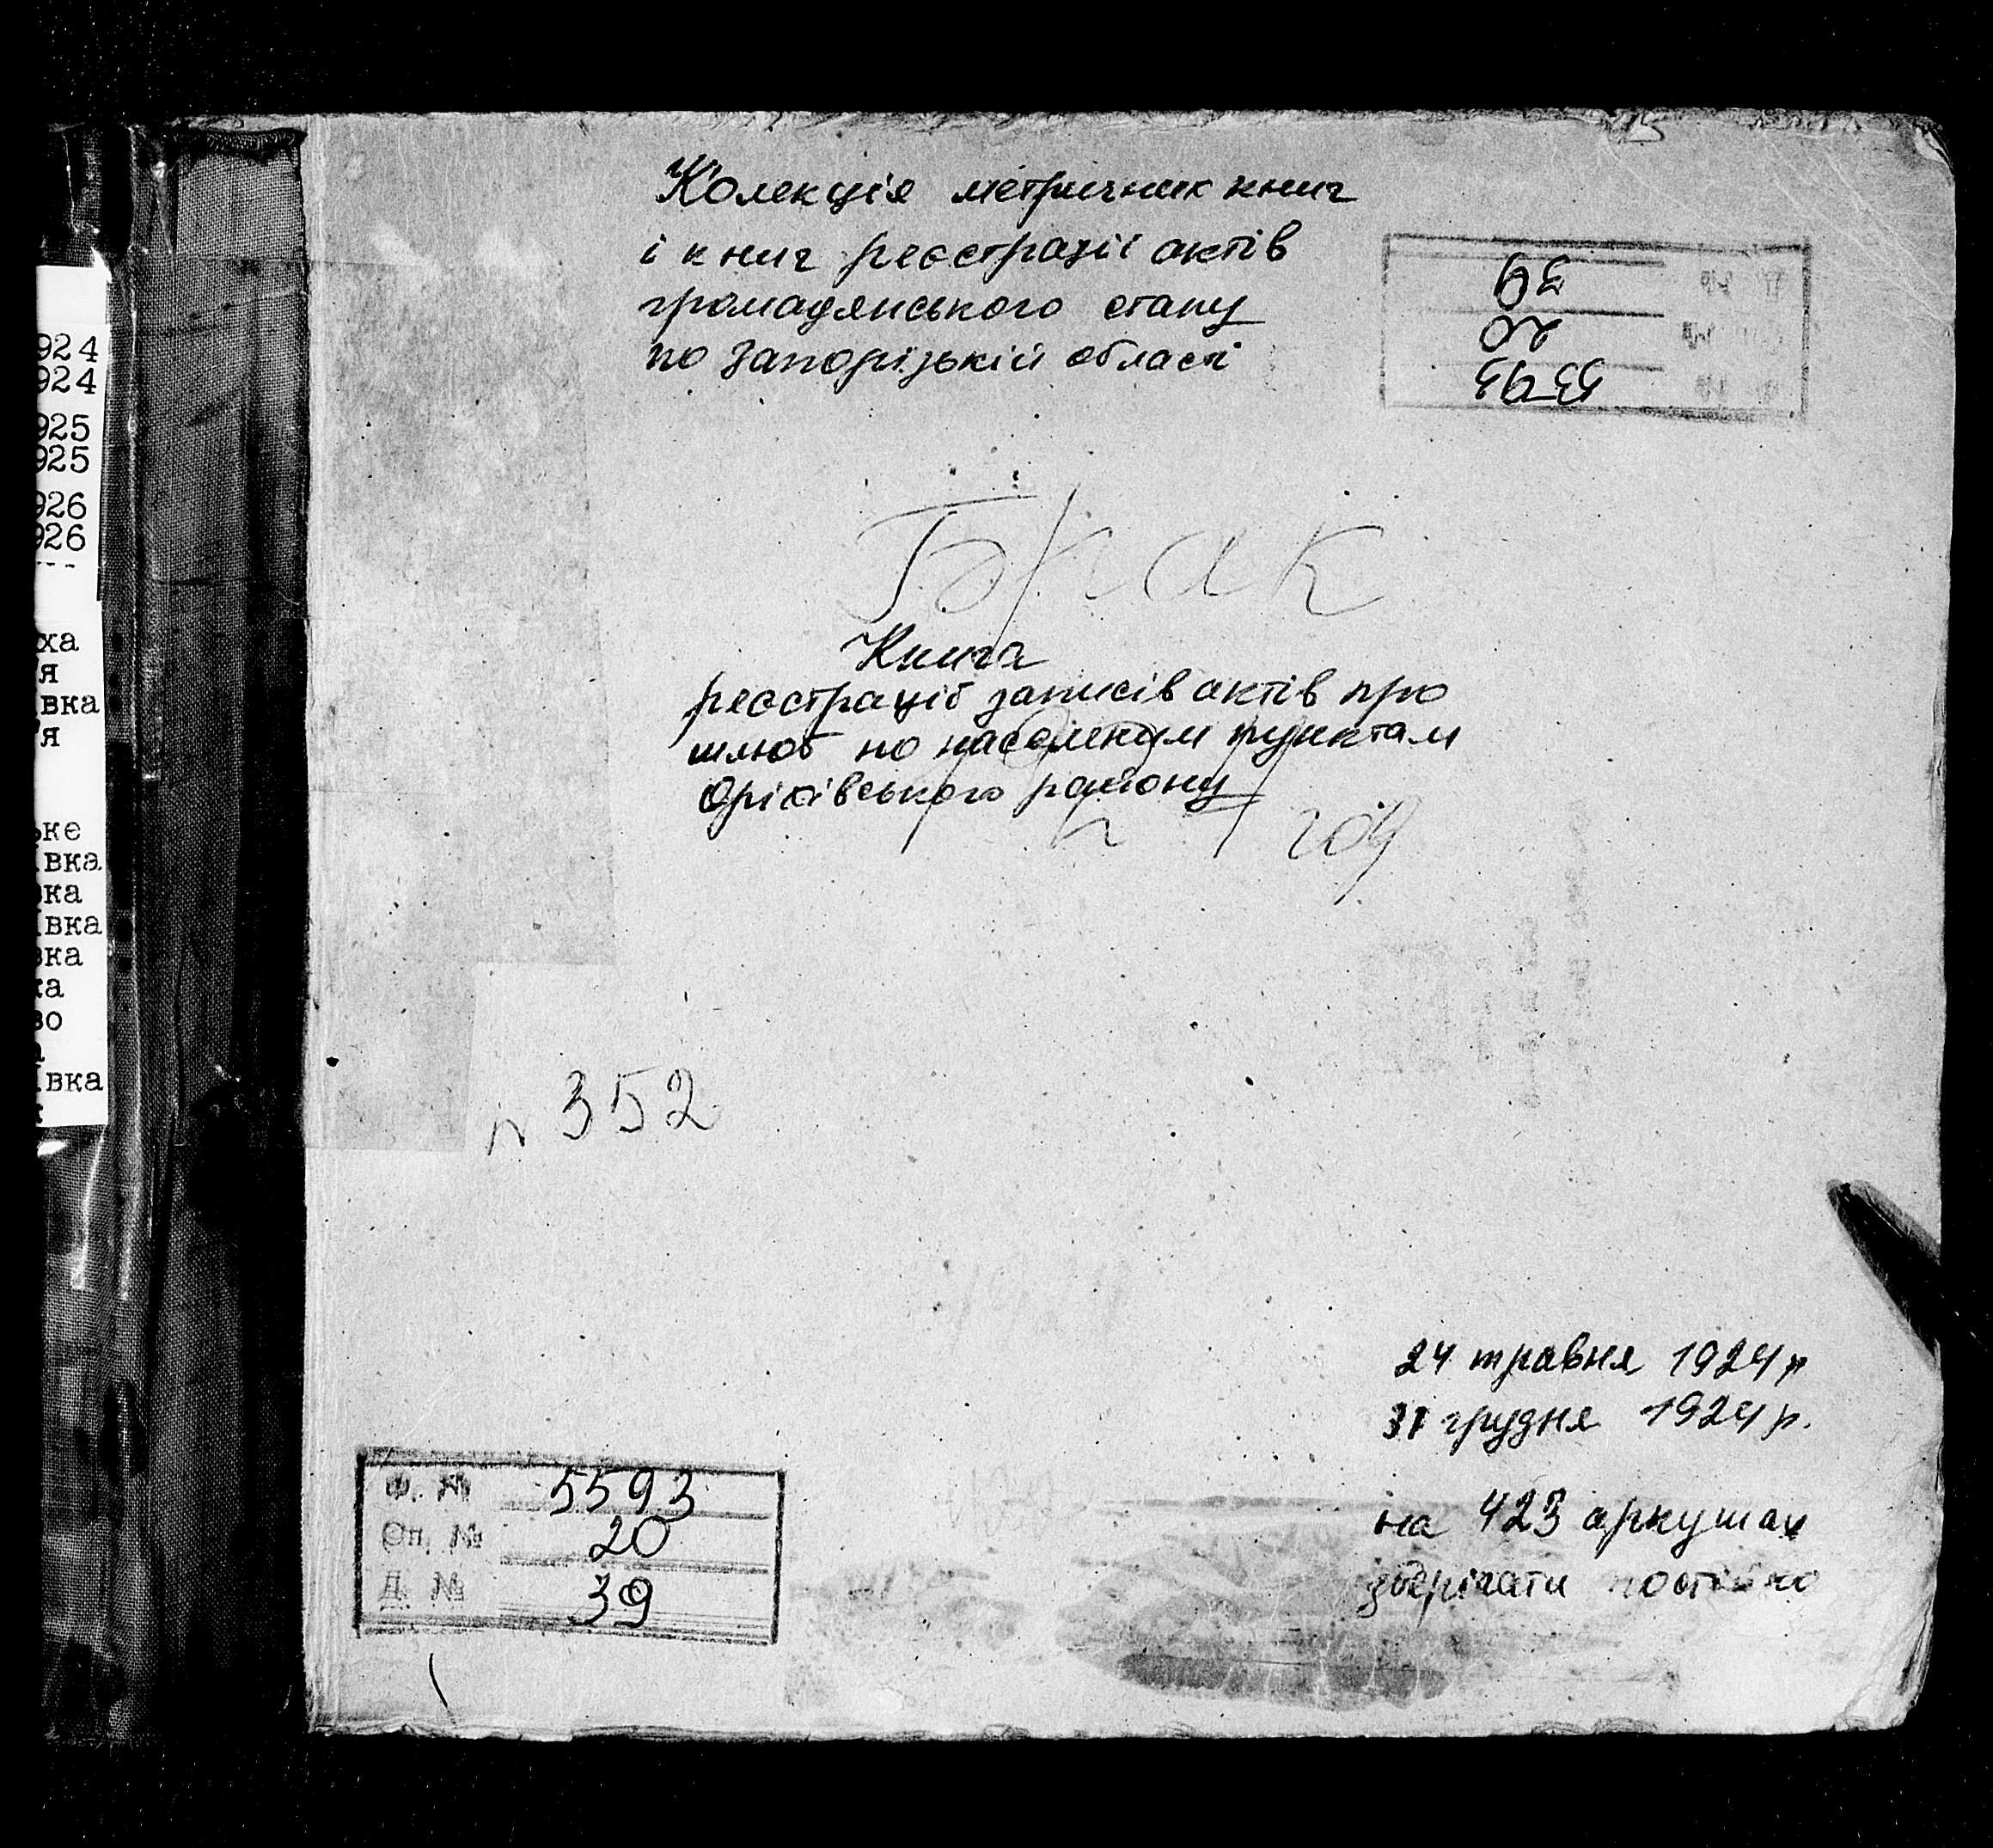 924
924
925
925
926
926
---
ха
я
івка
'я
ьке
івка
вка
івка
вка
ка
во
а
івка
Колекція метричних книг
і книг реєстрації актів
громадянського стану
по Запорізькій області
39
20
5593
Брак
Книга
реєстрації записів актів про
шлюб по населеним пунктам
Оріхівського району
год
№ 352
24 травня 1924 р
31 грудня 1924 р.
на 423 аркушах
зберігати постійно
Ф. № 5593
Оп. № 20
Д. № 39